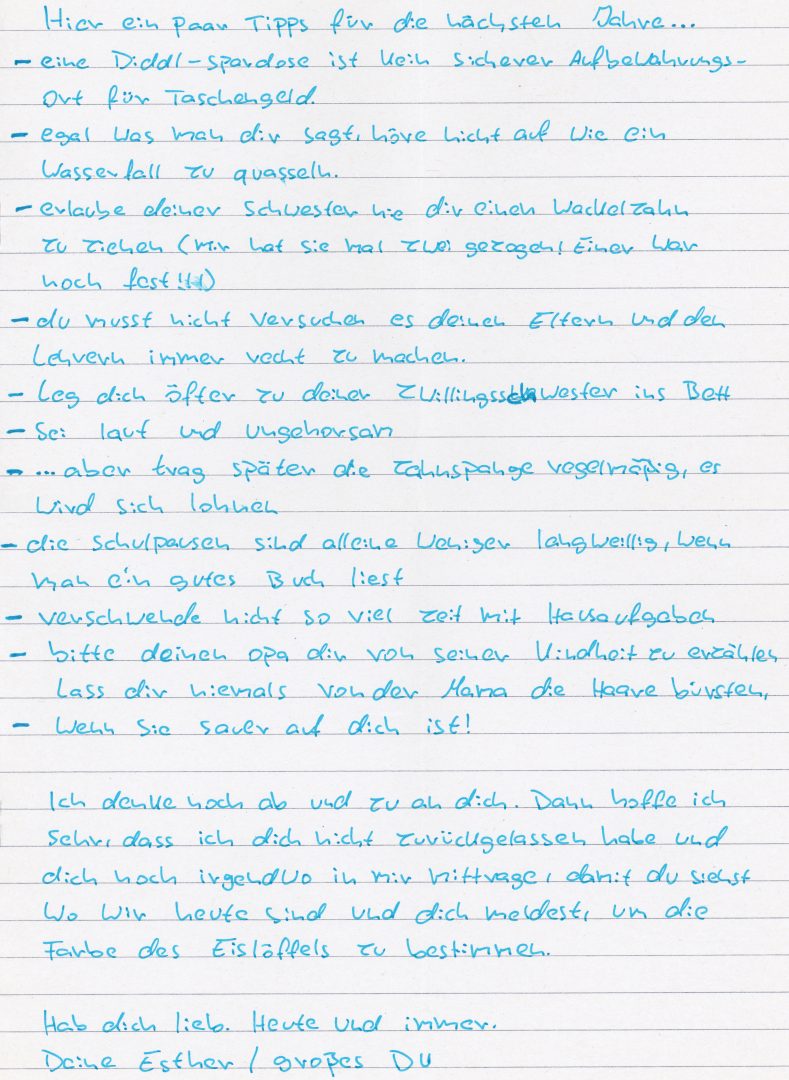 Hier ein paar Tipps für die nächsten Jahre...
- eine Diddl-Spardose ist kein sicherer Aufbewahrungs-
Ort für Taschengeld.
- egal was man dir sagt, höre nicht auf wie ein
Wasserfall zu quasseln.
- erlaube deiner Schwester nie dir einen Wackelzahn
zu ziehen (mir hat sie mal zwei gezogen! Einer war
noch fest!!!!)
- du musst nicht versuchen es deinen Eltern und den
Lehrern immer recht zu machen.
- Leg dich öfter zu deiner Zwillingsschwester ins Bett
- Sei laut und ungehorsam
- ... aber trag später die Zahnspange regelmäßig, es
wird sich lohnen
- die Schulpausen sind alleine weniger langweillig, wenn
man ein gutes Buch liest
- verschwende nicht so viel Zeit mit Hausaufgaben
- bitte deinen Opa dir von seiner Kindheit zu erzählen
Lass dir niemals von der Mama die Haare bürsten,
- wenn sie sauer auf dich ist!
Ich denke noch ab und zu an dich. Dann hoffe ich
sehr, dass ich dich nicht zurückgelassen habe und
dich noch irgendwo in mir mittrage, damit du siehst
wo wir heute sind und dich meldest, um die
Farbe des Eislöffels zu bestimmen.
Hab dich lieb. Heute und immer.
Deine Esther / großes DU